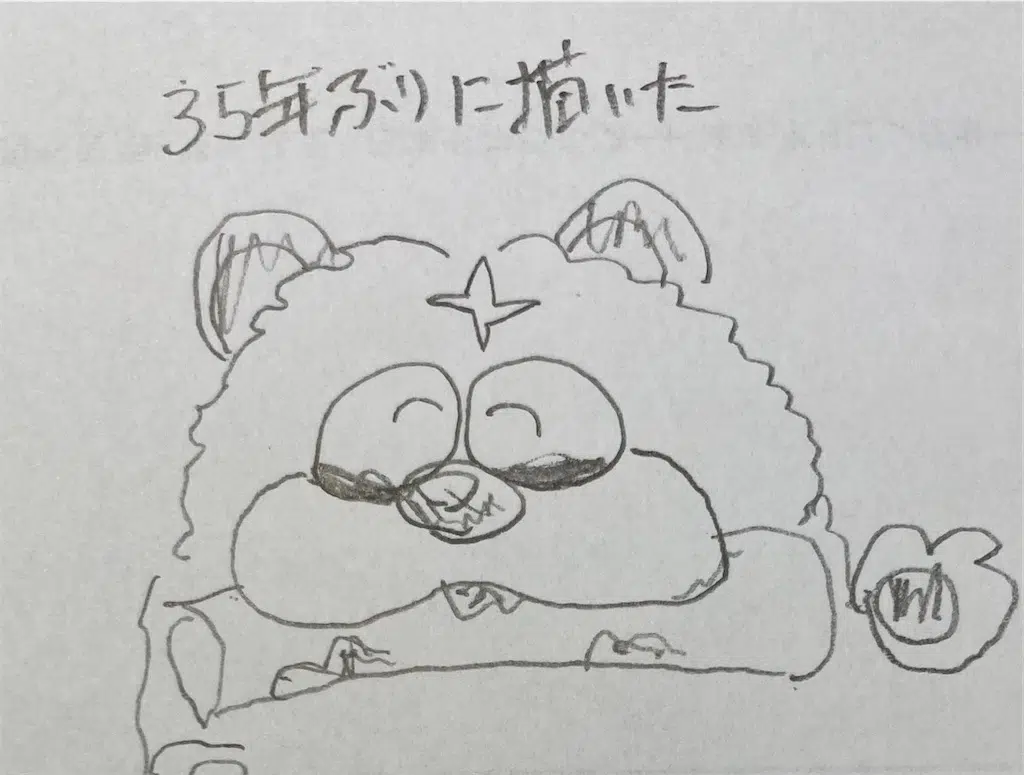 35年ぶりに描いた